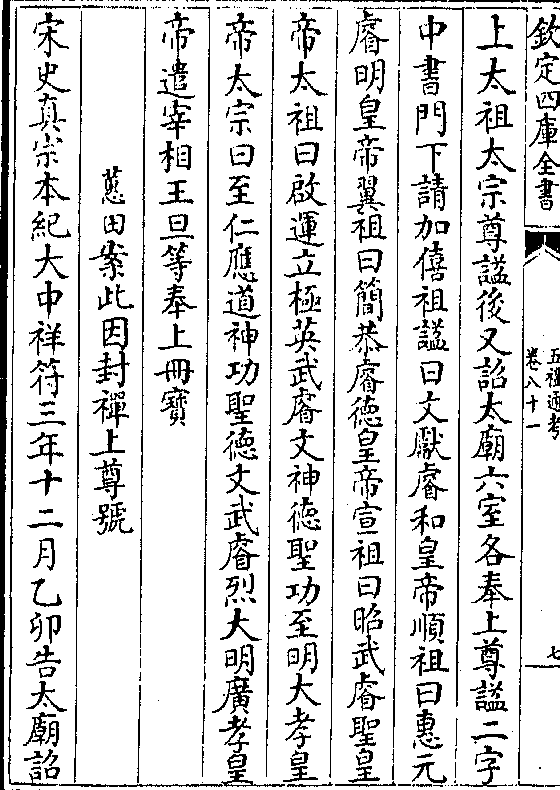 欽定四庫全書
五禮通考
卷八十一
七
上太祖太宗尊諡後又詔太廟六室各奉上尊諡二字
中書門下請加僖祖諡曰文獻睿和皇帝順祖曰惠元
睿明皇帝翼祖曰簡恭睿德皇帝宣祖曰昭武睿聖皇
帝太祖曰啟運立極英武睿文神德聖功至明大孝皇
帝太宗曰至仁應道神功聖德文武睿烈大明廣孝皇
帝遣宰相王旦等奉上冊寶
蕙田案此因封禪上尊號
宋史真宗本紀大中祥符三年十二月乙卯告太廟詔